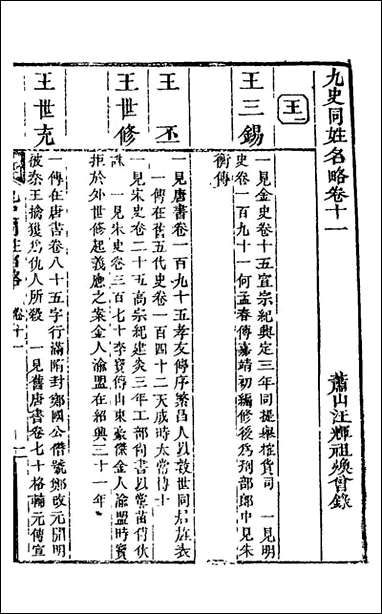 九史同姓名略卷十一
蕭山汪輝祖煥曾錄
王
王三錫
一見金史卷十五宣宗紀興定三年同提舉榷貨司 一見明
史卷一百九十一何孟春傳嘉靖初編修後爲刑部郎中見朱
衡傳
王丕
一見唐書卷一百九十五孝友傳序繁昌人以數世同居旌表
一傳在舊五代史卷一百四十二天成時太常博士
王世修
一見宋史卷二十五高宗紀建炎三年工部尚書以黨苗傅伏
誅 一見宋史卷三百七十李寶傳山東豪傑金人渝盟時寶
拒於外世修起義應之案金人渝盟在紹興三十一年
王世充
一傳在唐書卷八十五字行滿隋封鄭國公僭號鄭改元開明
被秦王擒獲爲仇人所殺 一見舊唐書卷七十格輔元傳宣
九史同姓名略 卷十一 一